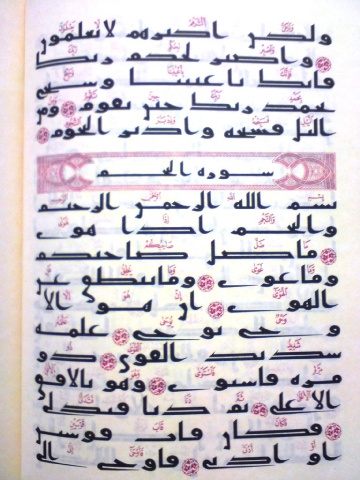 ولكن اكثرهم لا يعلمون
واصبر لحكم ربك
فانك باعيننا وسبح
بحمد ربك حين تقوم ومن
اليل فسبحه وادبر النجوم
سورة النجم
بسم الله الرحمن الرحيم
والنجم اذا هوى
ما ضل صاحبكم
وما غوى وما ينطق عن
الهوى ان هو الا
وحي يوحى علمه
شديد القوى ذو
مرة فاستوى وهو بالافق
الاعلى ثم دنا فتدلى
فكان قاب قوسين
او ادنى فاوحى الى